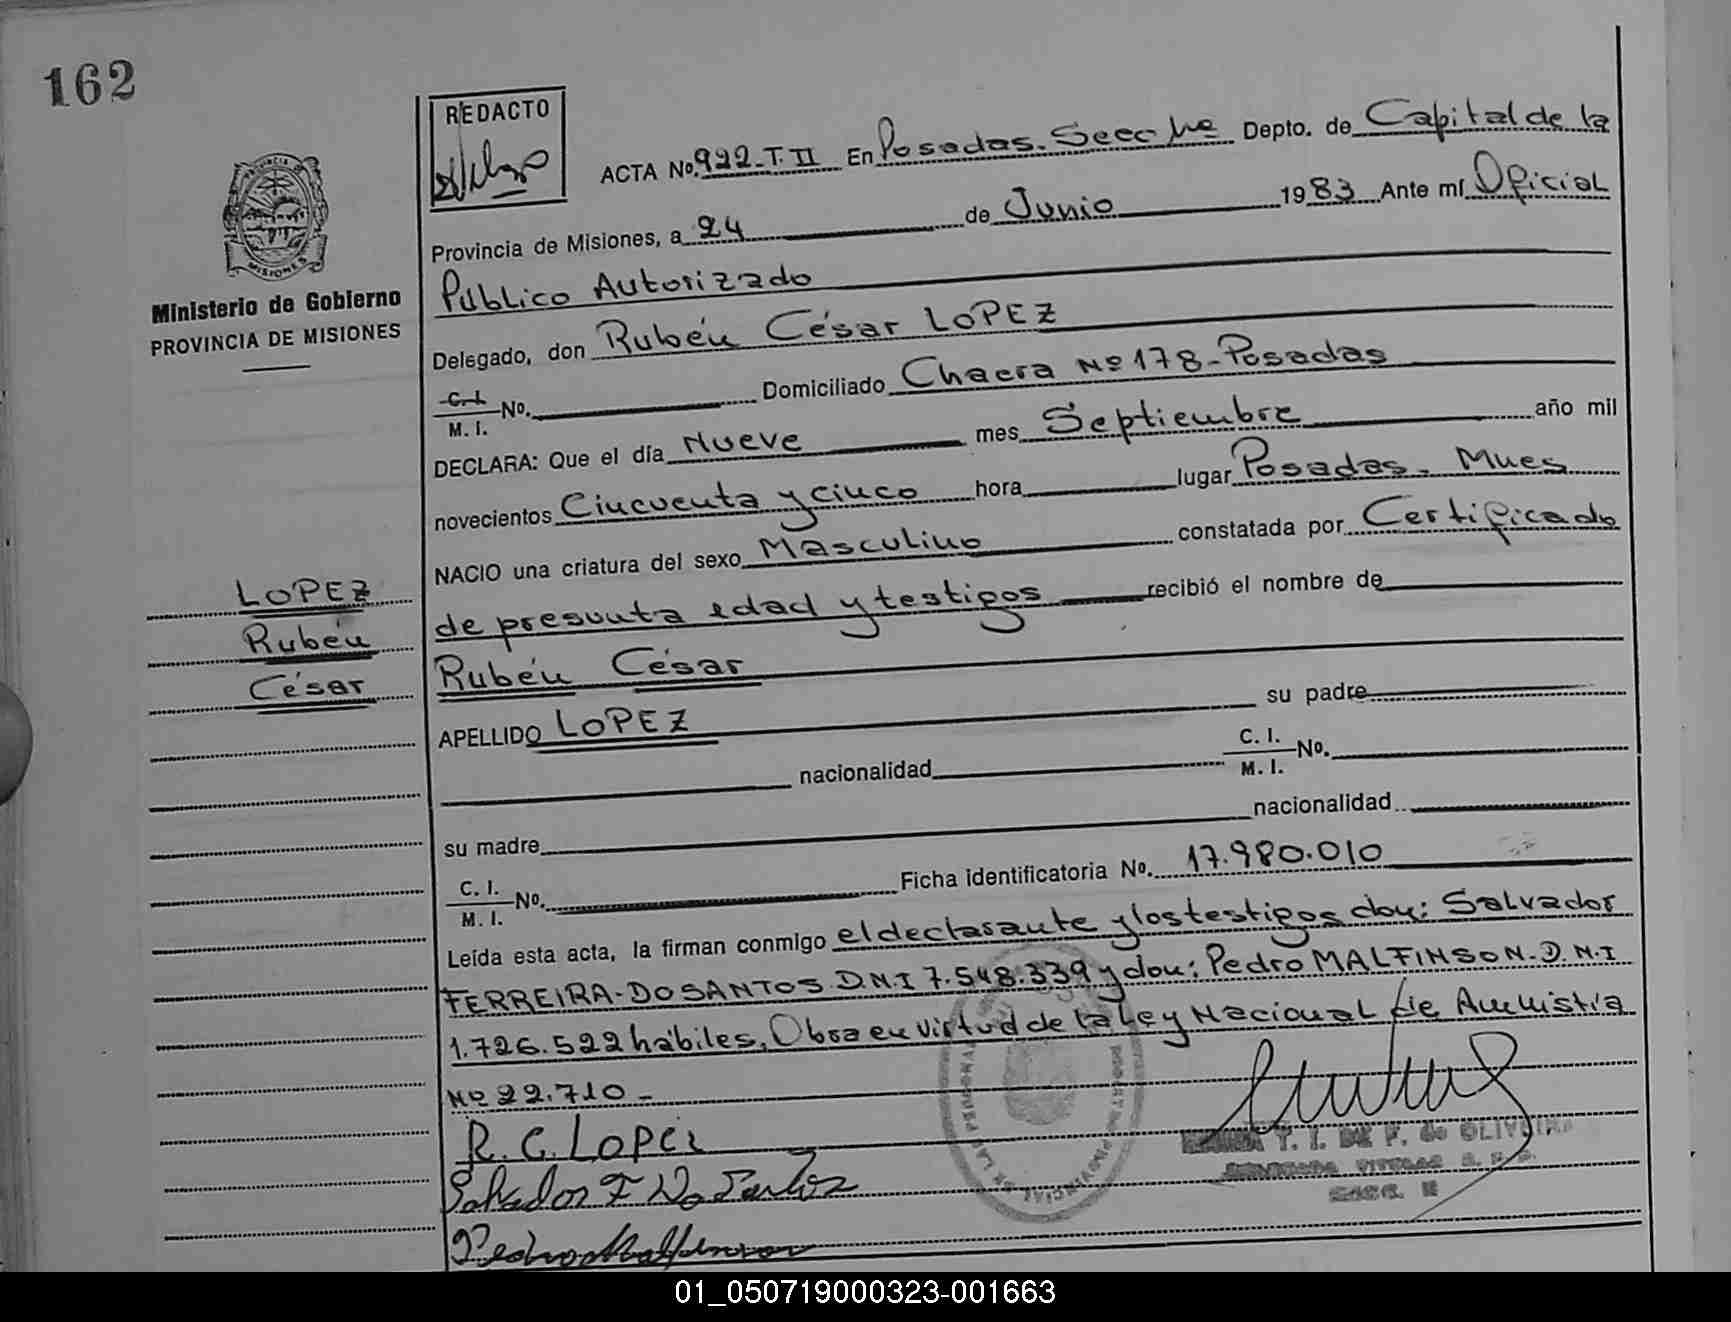 162
REDACTO
ACTA No. 922-T.II En Posadas. Secc 1ra Depto. de Capital de la
Provincia de Misiones, a 24 de Junio 1983 Ante mí Oficial
Público Autorizado
Delegado, don Rubén César LOPEZ
C. I. M. I. No. Domiciliado Chacra Nº 178-Posadas
DECLARA: Que el día Nueve mes Septiembre año mil
novecientos Cincuenta y cinco hora lugar Posadas. Mnes
NACIO una criatura del sexo Masculino constatada por Certificado
de presunta edad y testigos recibió el nombre de
Rubén César
APELLIDO LOPEZ su padre
nacionalidad C. I. M. I. No.
su madre nacionalidad
C. I. M. I. No. Ficha identificatoria No. 17.980.010
Leída esta acta, la firman conmigo el declarante y los testigos don: Salvador
FERREIRA-DOSANTOS D.N.I 7.548.339 y don: Pedro MALFINSON-D.N.I
1.726.522 hábiles. Obra en virtud de la Ley Nacional de Amnistía
Nº 22.710-
R. C. Lopez
Salvador F Do Santos
Pedro Malfinson
T. I. DE F. de OLIVEIRA
MISIONES
Ministerio de Gobierno
PROVINCIA DE MISIONES
LOPEZ
Rubén
César
01_050719000323-001663